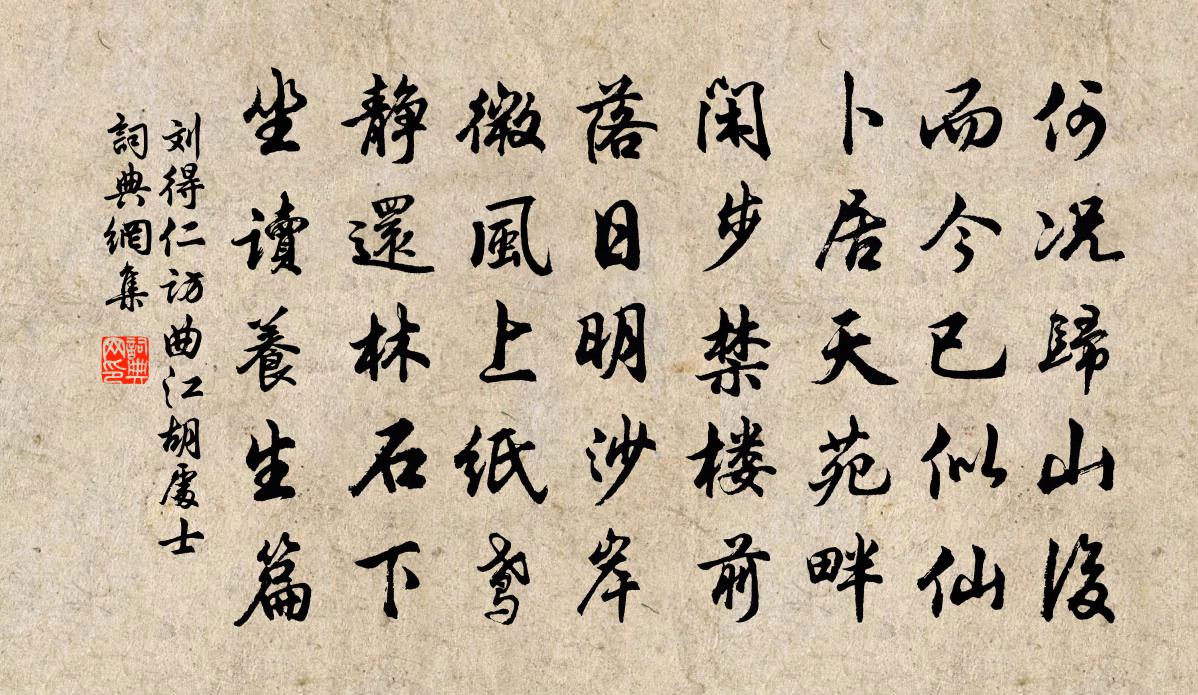 何况歸山後
而今已似仙
卜居天苑畔
閑步禁楼前
落日明沙岸
微風上紙鳶
静還林石下
坐讀養生篇
刘得仁訪曲江胡處士
詞典網集
詞典网印